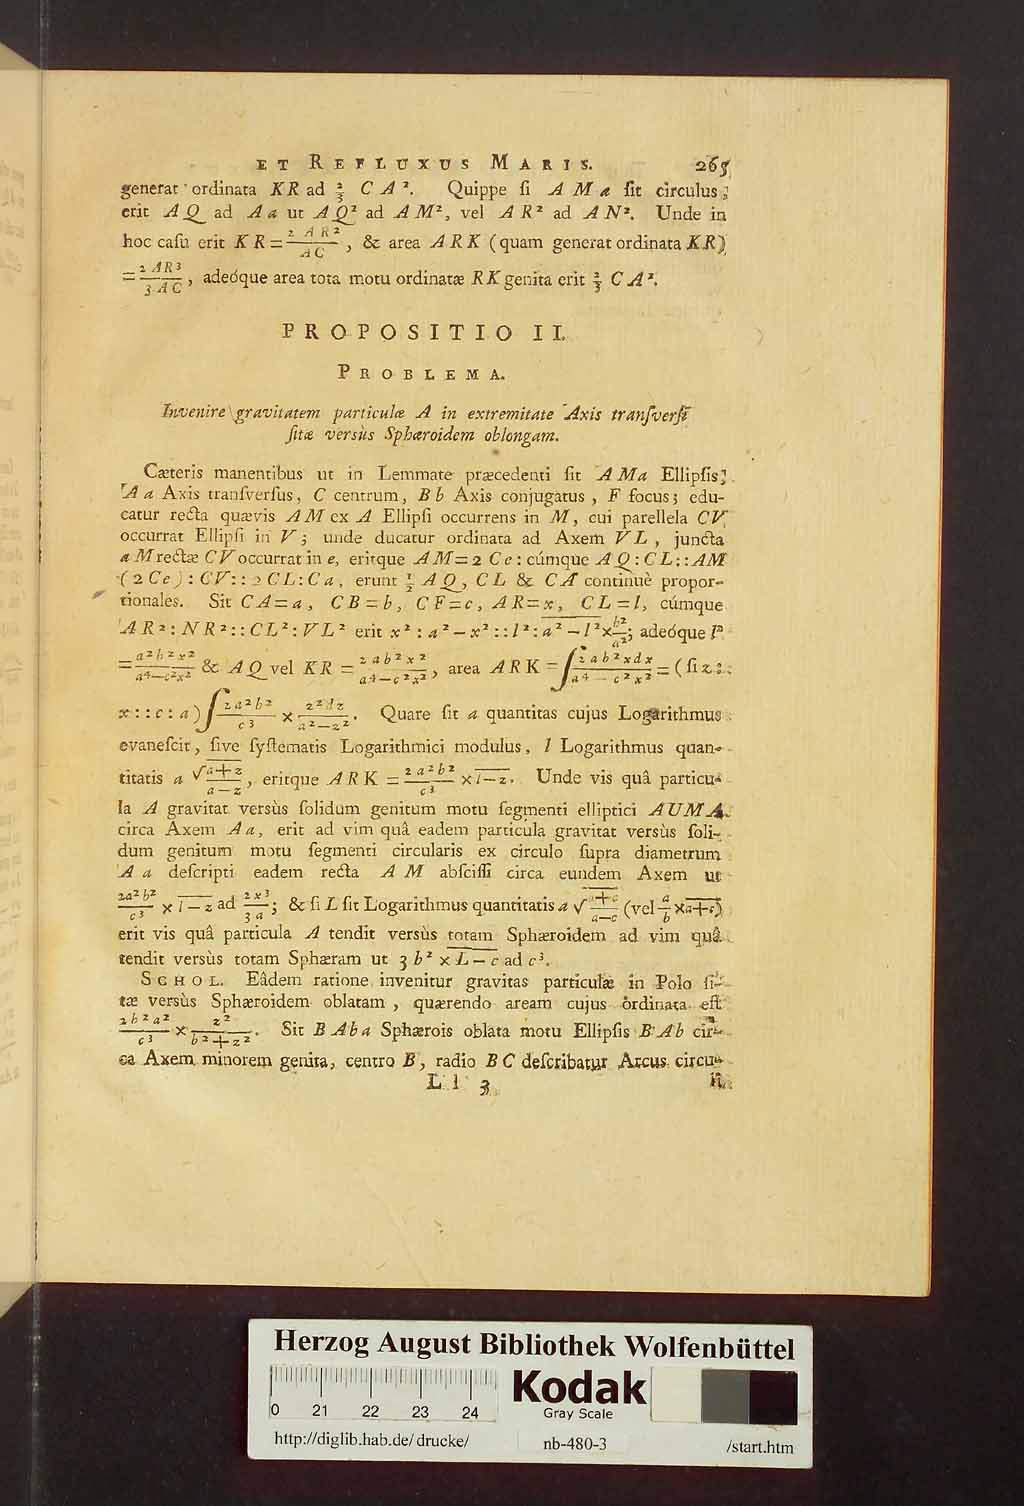 ET REFLUXUS MARIS. 265
generat ordinata KR ad 2/3 CA². Quippe ſi AMa ſit circulus;
erit AQ ad Aa ut AQ² ad AM², vel AR² ad AN². Unde in
hoc caſu erit KR = 2AR²/AC, & area ARK (quam generat ordinata KR)
= 2AR³/3AC, adeóque area tota motu ordinatæ RK genita erit 2/3 CA².
PROPOSITIO II.
PROBLEMA.
Invenire gravitatem particulæ A in extremitate Axis tranſverſi
ſitæ versùs Sphæroidem oblongam.
Cæteris manentibus ut in Lemmate præcedenti ſit AMa Ellipſis;
Aa Axis tranſverſus, C centrum, Bb Axis conjugatus, F focus; edu-
catur recta quævis AM ex A Ellipſi occurrens in M, cui parellela CV
occurrat Ellipſi in V; unde ducatur ordinata ad Axem VL, juncta
aM rectæ CV occurrat in e, eritque AM = 2Ce: cúmque AQ:CL::AM
(2Ce):CV::2CL:Ca, erunt 1/2 AQ, CL & CA continuè propor-
tionales. Sit CA=a, CB=b, CF=c, AR=x, CL=l, cúmque
AR²:NR²::CL²:VL² erit x²:a²−x²::l²:a²−l²×b²/a²; adeóque l²
= a²b²x²/a⁴−c²x² & AQ vel KR = 2ab²x²/a⁴−c²x², area ARK = ∫2ab²xdx/a⁴−c²x² = (ſi z:
x::c:a) ∫2a²b²/c³ × z²dz/a²−z². Quare ſit a quantitas cujus Logarithmus
evaneſcit, ſive ſyſtematis Logarithmici modulus, l Logarithmus quan-
titatis a √a+z/a−z, eritque ARK = 2a²b²/c³ × l−z. Unde vis quâ particu-
la A gravitat versùs ſolidum genitum motu ſegmenti elliptici AUMA
circa Axem Aa, erit ad vim quâ eadem particula gravitat versùs ſoli-
dum genitum motu ſegmenti circularis ex circulo ſupra diametrum
Aa deſcripti eadem recta AM abſciſſi circa eundem Axem ut
2a²b²/c³ × l−z ad 2x³/3a; & ſi L ſit Logarithmus quantitatis a √a+c/a−c (vel a/b × a+c)
erit vis quâ particula A tendit versùs totam Sphæroidem ad vim quâ
tendit versùs totam Sphæram ut 3b² × L−c ad c³.
SCHOL. Eâdem ratione invenitur gravitas particulæ in Polo ſi-
tæ versùs Sphæroidem oblatam, quærendo aream cujus ordinata eſt
2b²a²/c³ × z²/b²+z². Sit BAba Sphærois oblata motu Ellipſis BAb cir-
ca Axem minorem genita, centro B, radio BC deſcribatur Arcus circu-
Ll 3 li
Herzog August Bibliothek Wolfenbüttel
Kodak
Gray Scale
0 21 22 23 24
http://diglib.hab.de/drucke/ nb-480-3 /start.htm